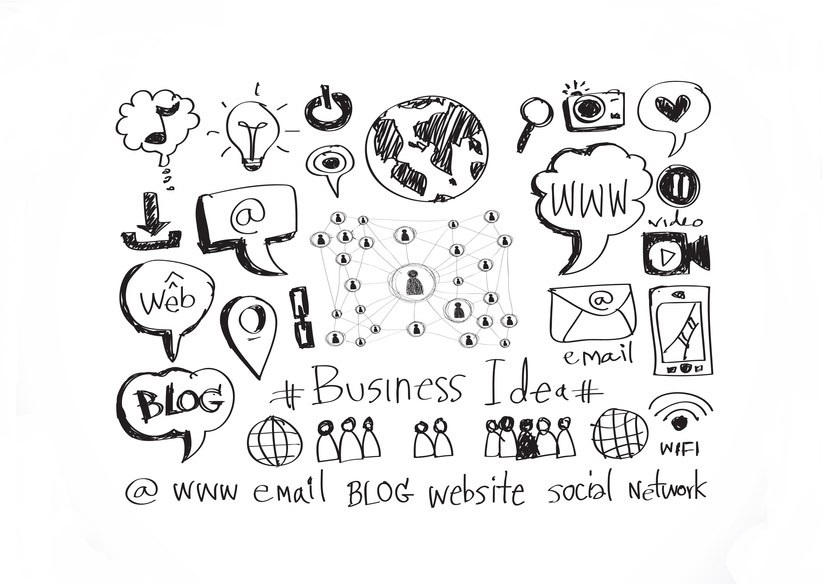 @
WWW
video
Web
@
email
# Business Idea #
BLOG
WIFI
@ WWW email BLOG website social Network